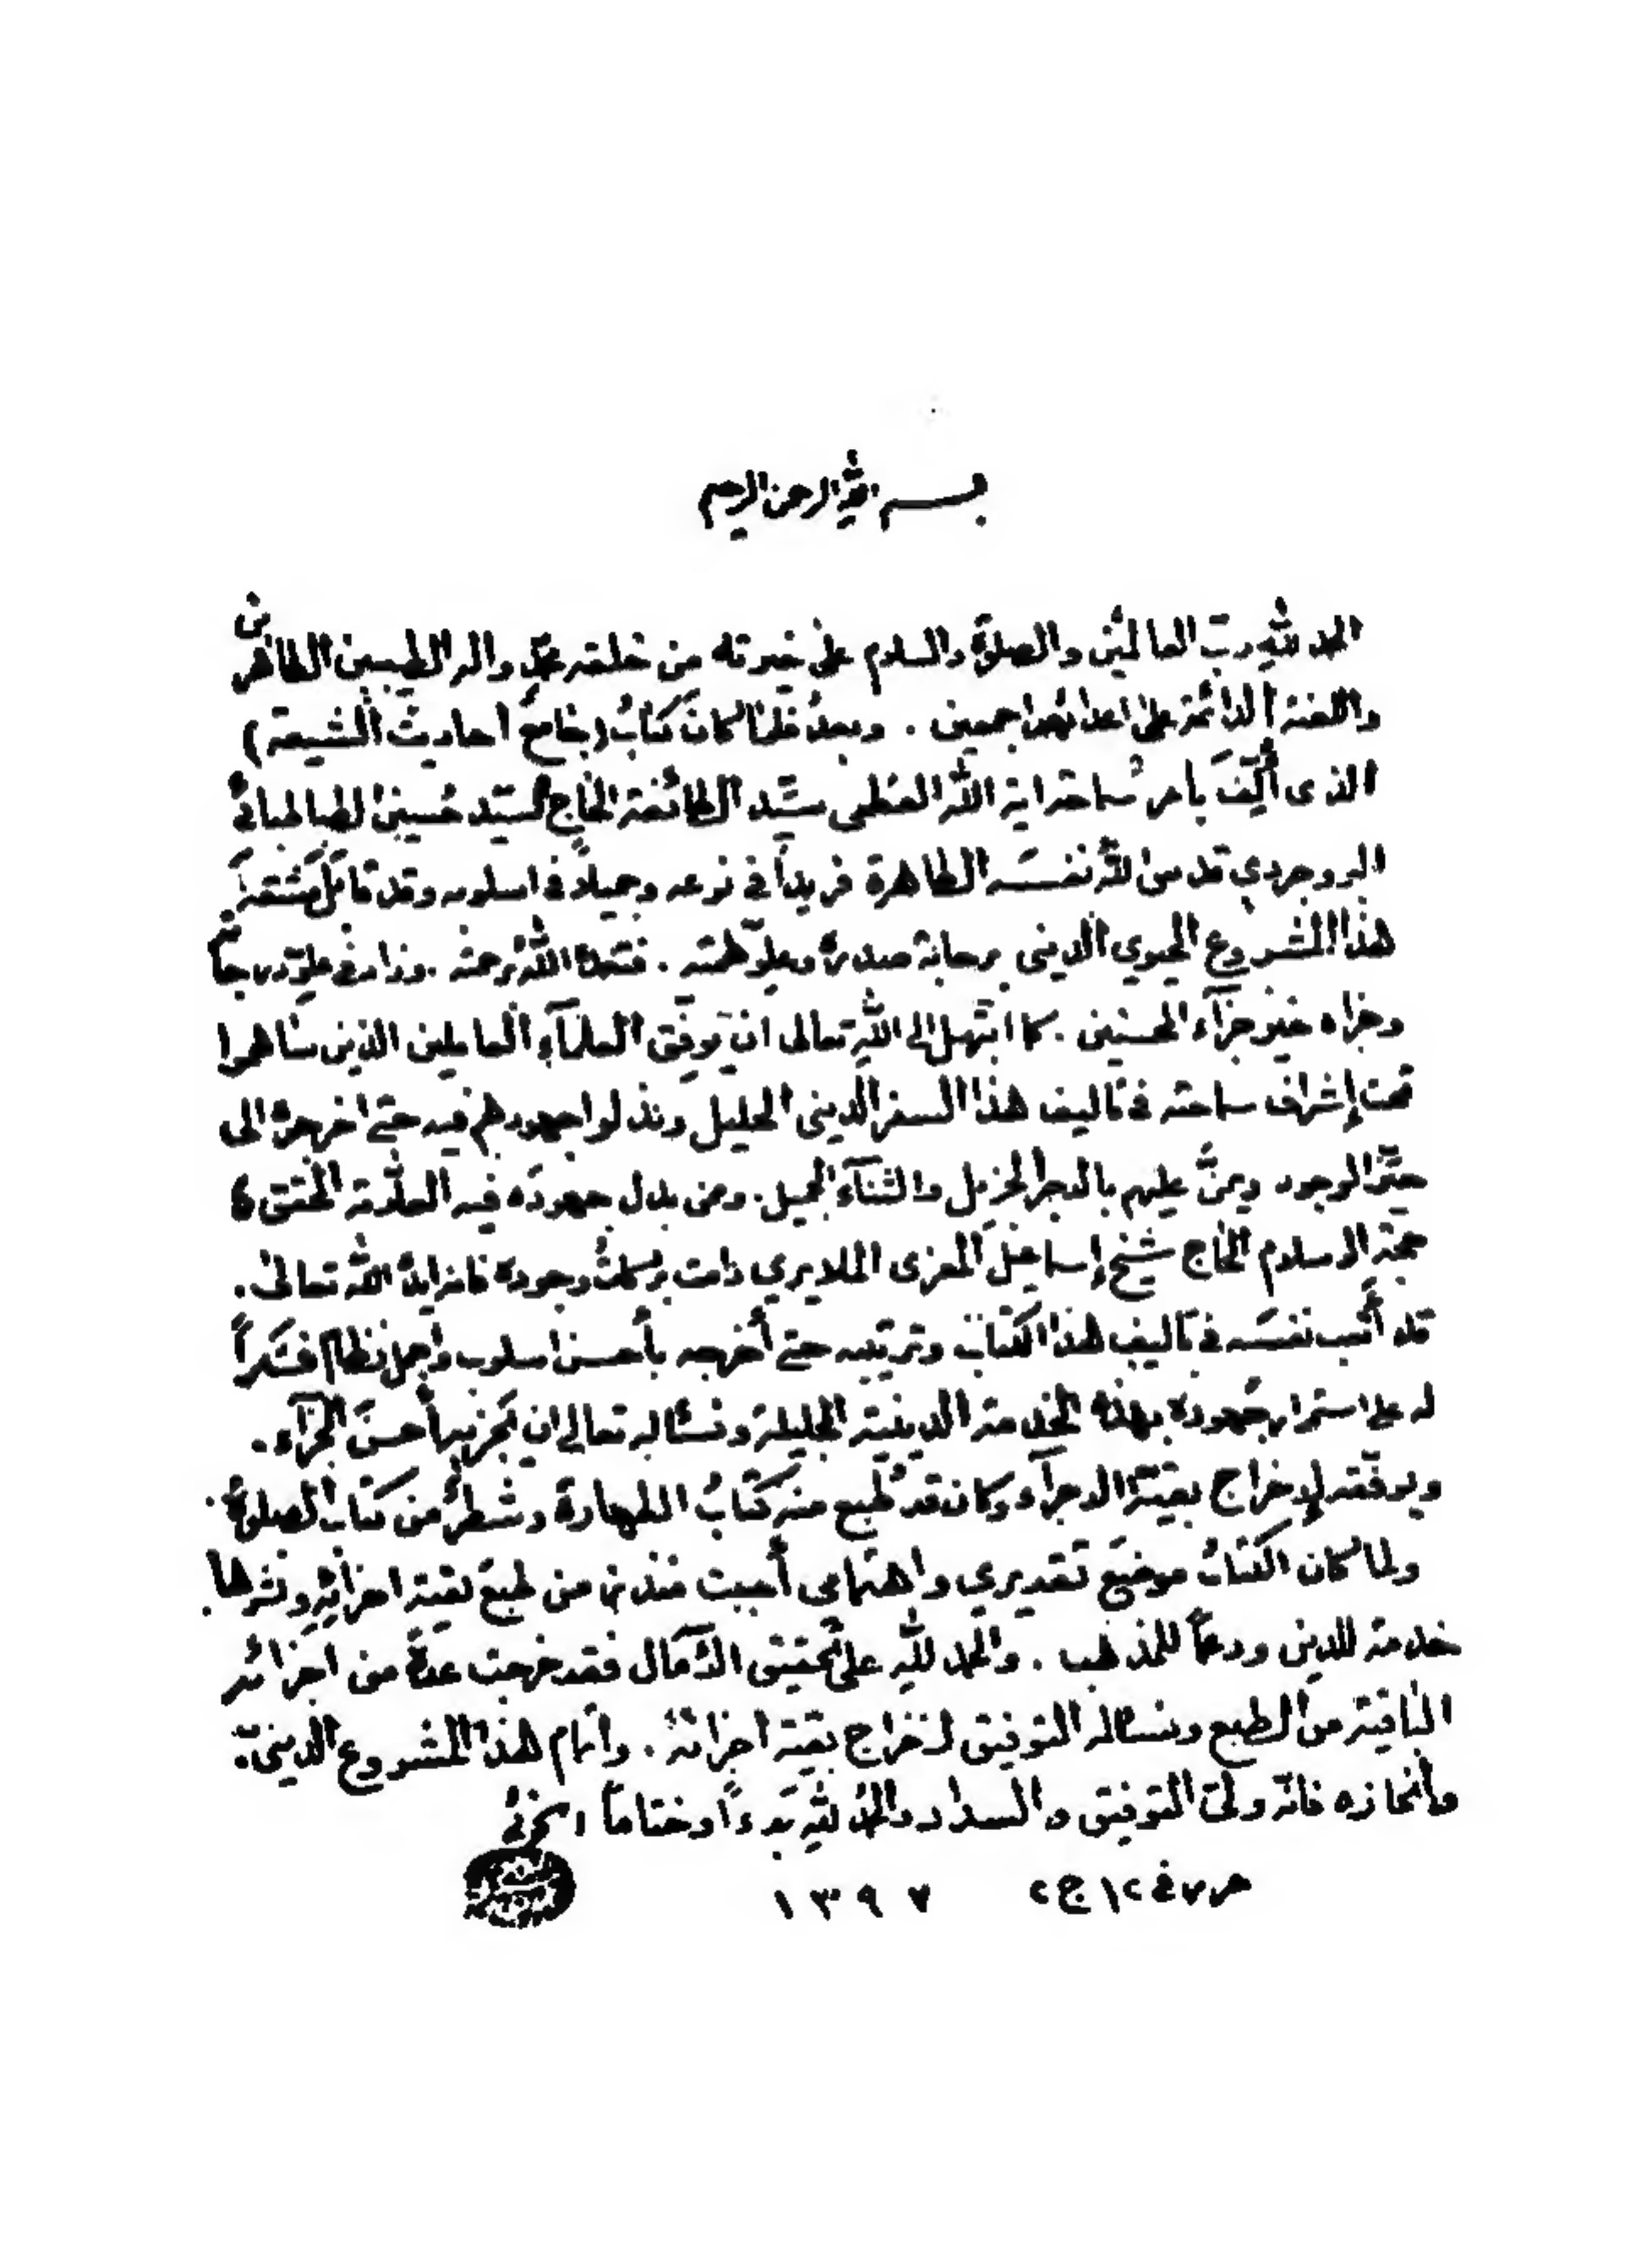 بسم الله الرحمن الرحيم
الحمد لله ربّ العالمين والصلوة والسلام على خيرته من خلقه محمّد واله الطيبين الطاهرين
واللعنة الدائمة على اعدائهم اجمعين . وبعدُ فلمّا كان كتابُ (جامعُ احاديث الشيعة)
الذى أُلِّفَ بأمر سماحة اية الله العظمى سيّد الطائفة الحاج السيّد حُسين الطباطبائى
البروجردي قدس الله نفسَه الطاهرة فريداً في نوعه وجميلاً في اسلوبه وقد تحمّل مشقة
هذا المشروع الحيوي الديني برحابة صدره وعلوّ همّته . فتغمّده الله برحمته . وزاد في علوّ درجاته
وجزاه خير جزآء المحسنين . كما ابتهل الى اللهِ تعالى ان يوفّق العلمآء العاملين الذين ساهموا
تحت إشراف سماحته في تأليف هذا السفر الديني الجليل وبذلوا جهودهم فيه حتى اخرجوه الى
حيّز الوجود ويمنَّ عليهم بالاجر الجزيل والثنآء الجميل . وممن بذل جهودَه فيه العلّامة الحجّة
حجة الاسلام الحاج شيخ إسماعيل المعزى الملايري دامت بركاتُ وجوده فانه ايده الله تعالى .
قد أتعب نفسَه في تأليف هذا الكتاب وترتيبه حتى أخرجه بأحسن اسلوب واجمل نظام فشكراً
له على استمرار جُهوده بهذه الخدمة الدينية الجليلة ونسأله تعالى ان يجزيه أحسنَ الجزآء .
ويوفّقه لإخراج بقيّة الاجزآء وكان قد طُبع منه كتابُ الطهارة وشطرٌ من كتاب الصلوة .
ولما كان الكتابُ موضعَ تقديري واهتمامى أحببت من طبع بقية اجزائهِ ونشرها .
خدمة للدين ودعماً للمذهب . والحمد للهِ على تحقيق الآمال فقد خرجت عدةٌ من اجزائه
الباقية من الطبع ونسأله التوفيق لاخراج بقية اجزائه . واتمام هذا المشروع الدينى
وانجازه فانّه ولىّ التوفيق والسداد والحمدُ للهِ بَدءاً وختاماً الخوئى
حرر في ١٢ ج٢ ١٣٩٧